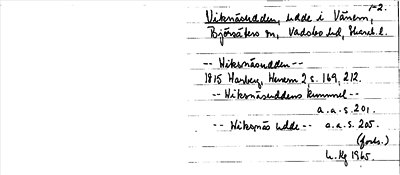 1-2.
Viksnäsudden, udde i Vänern,
Björsäters sn, Vadsbo hd, Skarab. l.
-- Wiksnäsudden --
1815 Marberg, Hierem 2, s. 169, 212.
-- Wiksnäsuddens kummel --
a.a.s. 201.
-- Wiksnäs udde -- a.a.s. 205.
(forts.)
L. Hg 1965.